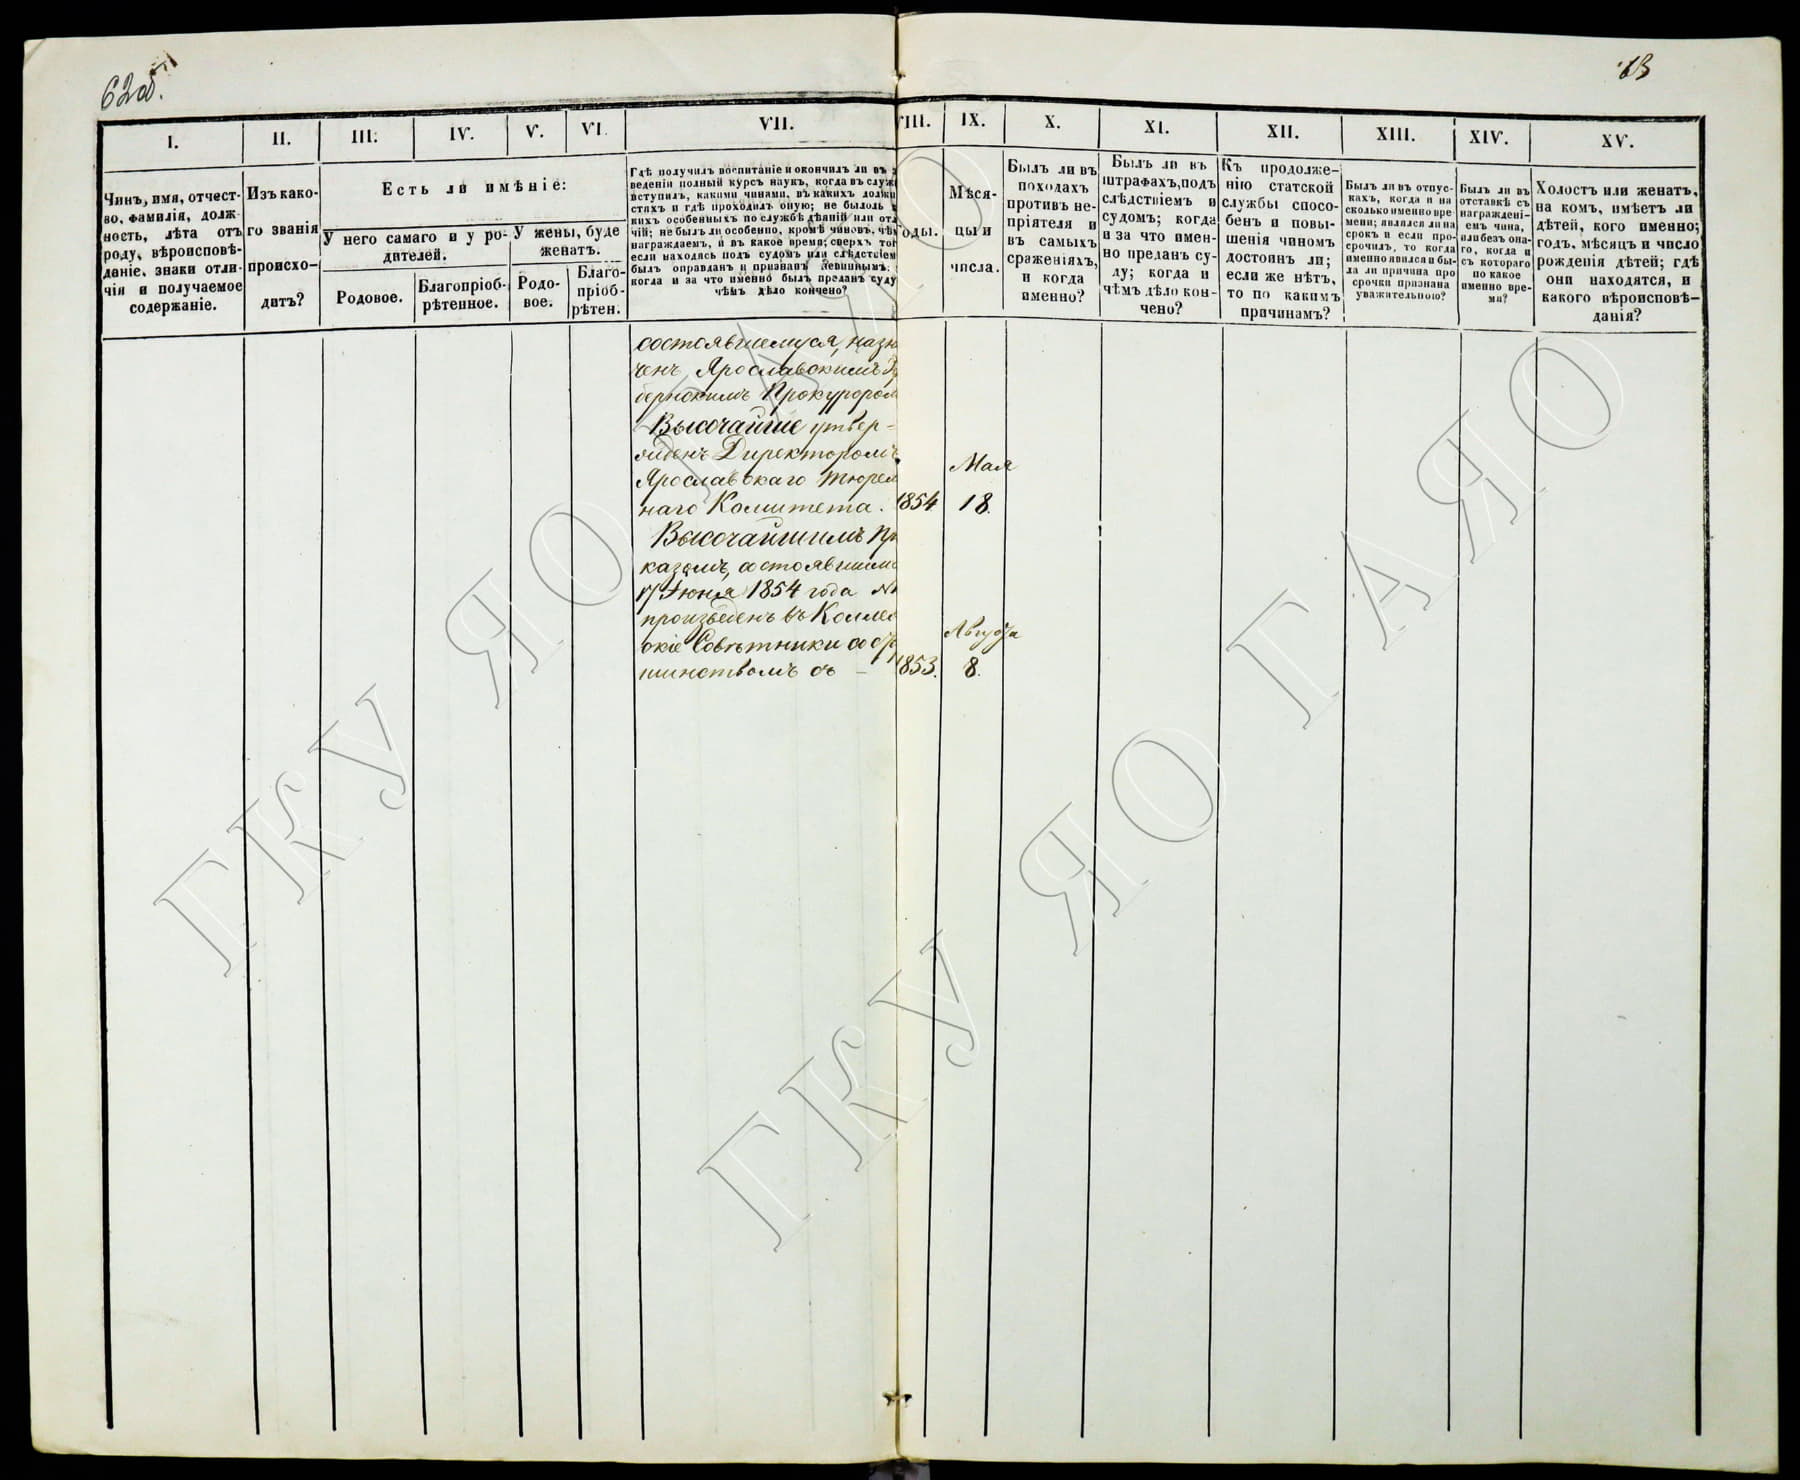 62об.
63
I.
II.
III.
IV.
V.
VI.
VII.
VIII.
IX.
X.
XI.
XII.
XIII.
XIV.
XV.
Чинъ, имя, отчест-
во, фамилія, долж-
ность, лѣта отъ
роду, вѣроисповѣ-
даніе, знаки отли-
чія и получаемое
содержаніе.
Изъ како-
го званія
происхо-
дитъ?
Есть ли имѣніе:
У него самаго и у ро-
дителей.
У жены, буде
женатъ.
Родовое.
Благопріоб-
рѣтенное.
Родо-
вое.
Благо-
пріоб-
рѣтен.
Гдѣ получилъ воспитаніе и окончилъ ли въ з
веденіи полный курсъ наукъ, когда въ служ
вступилъ, какими чинами, въ какихъ должн
стяхъ и гдѣ проходилъ оную; не былоль
кихъ особенныхъ по службѣ дѣяній или отл
чій; не былъ ли особенно, кромѣ чиновъ, чѣм
награждаемъ, и въ какое время; сверхъ тог
если находясь подъ судомъ или слѣдствіем
былъ оправданъ и признанъ невиннымъ;
когда и за что именно былъ преданъ суду
чѣмъ дѣло кончено?
оды.
Мѣся-
цы и
числа.
Былъ ли въ
походахъ
противъ не-
пріятеля и
въ самыхъ
сраженіяхъ,
и когда
именно?
Былъ ли въ
штрафахъ, подъ
слѣдствіемъ и
судомъ; когда
и за что имен-
но преданъ су-
ду; когда и
чѣмъ дѣло кон-
чено?
Къ продолже-
нію статской
службы спосо-
бенъ и повы-
шенія чиномъ
достоинъ ли;
если же нѣтъ,
то по какимъ
причинамъ?
Былъ ли въ отпус-
кахъ, когда и на
сколько именно вре-
мени; являлся ли на
срокъ и если про-
срочилъ, то когда
именно явился и бы-
ла ли причина про
срочки признана
уважительною?
Былъ ли въ
отставкѣ съ
награжденi-
емъ чина,
или безъ она-
го, когда и
съ котораго
по какое
именно вре-
мя?
Холостъ или женатъ,
на комъ, имѣетъ ли
дѣтей, кого именно;
годъ, мѣсяцъ и число
рожденія дѣтей; гдѣ
они находятся, и
какого вѣроисповѣ-
данія?
состоявшемуся, назн
ченъ Ярославскимъ Гу
бернскимъ Прокуроромъ
Высочайше утвер-
жденъ Директоромъ
Ярославскаго Тюрем
наго Комитета. 1854 Мая 18.
Высочайшимъ При
казомъ, состоявшимс
17 Іюня 1854 года №
произведенъ въ Коллеж
скіе Совѣтники со ста
шинствомъ съ – 1853. Августа 8.
ГКУ ЯО ГАЯО
ГКУ ЯО ГАЯО